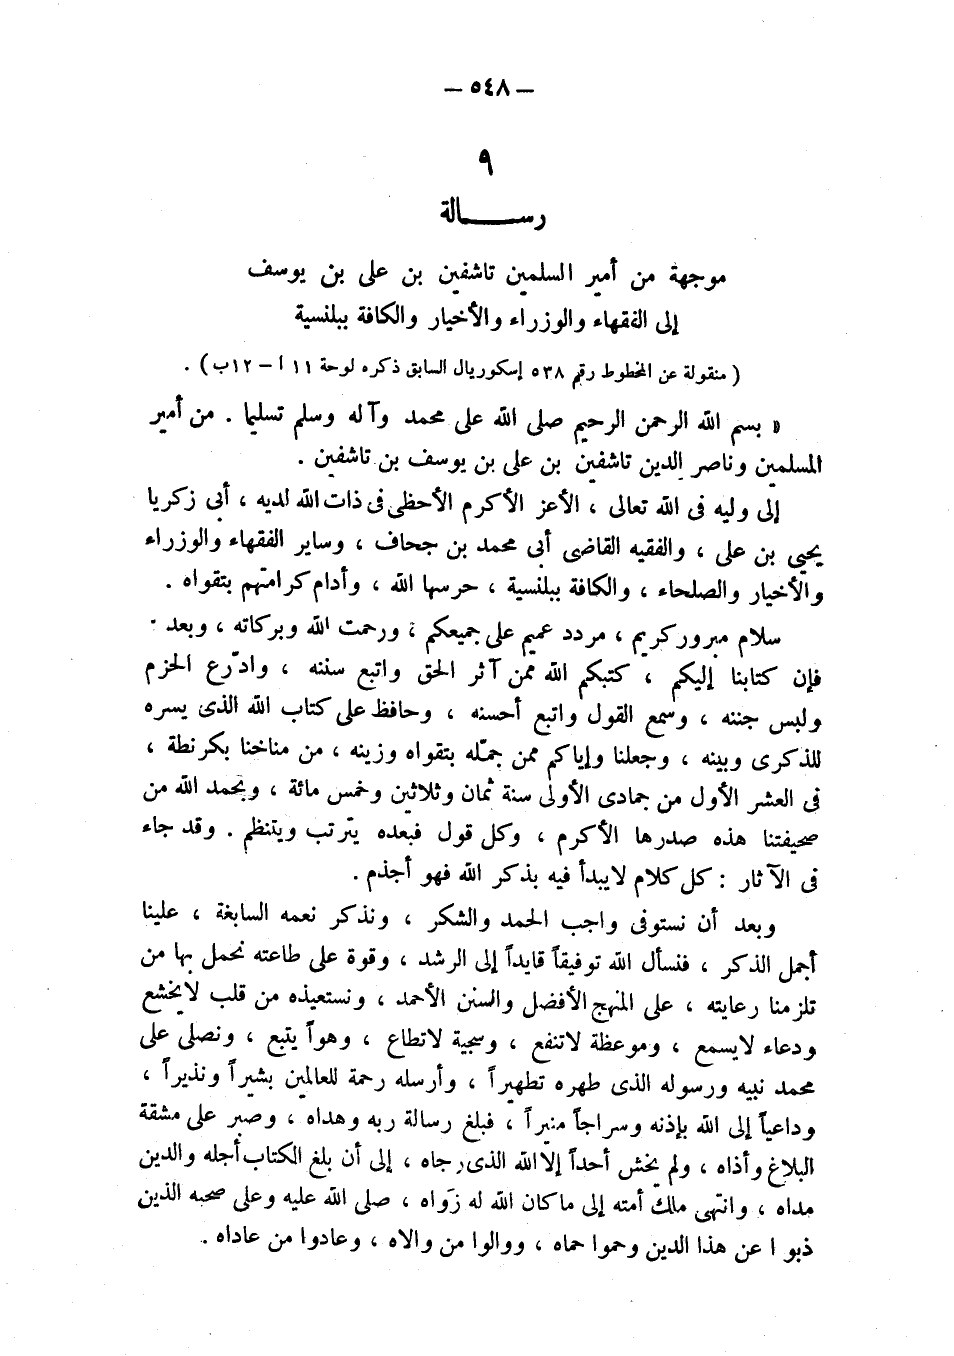 — ٥٤٨ —
٩
رســـــالة
موجهة من أمير المسلمين تاشفين بن على بن يوسف
إلى الفقهاء والوزراء والأخيار والكافة ببلنسية
( منقولة عن المخطوط رقم ٥٣٨ إسكوريال السابق ذكره لوحة ١١ ا – ١٢ب ) .
« بسم الله الرحمن الرحيم صلى الله على محمد وآله وسلم تسليما . من أمير
المسلمين وناصر الدين تاشفين بن على بن يوسف بن تاشفين .
إلى وليه فى الله تعالى ، الأعز الأكرم الأحظى فى ذات الله لديه ، أبى زكريا
يحيى بن على ، والفقيه القاضى أبى محمد بن جحاف ، وساير الفقهاء والوزراء
والأخيار والصلحاء ، والكافة ببلنسية ، حرسها الله ، وأدام كرامتهم بتقواه .
سلام مبرور كريم ، مردد عميم على جميعكم ، ورحمت الله وبركاته ، وبعد .
فإن كتابنا إليكم ، كتبكم الله ممن آثر الحق واتبع سننه ، وادّرع الحزم
ولبس جننه ، وسمع القول واتبع أحسنه ، وحافظ على كتاب الله الذى يسره
للذكرى وبينه ، وجعلنا وإياكم ممن جمّله بتقواه وزينه ، من مناخنا بكرنطة ،
فى العشر الأول من جمادى الأولى سنة ثمان وثلاثين وخمس مائة ، وبحمد الله من
صحيفتنا هذه صدرها الأكرم ، وكل قول فبعده يترتب وينتظم . وقد جاء
فى الآثار : كل كلام لايبدأ فيه بذكر الله فهو أجذم .
وبعد أن نستوفى واجب الحمد والشكر ، ونذكر نعمه السابغة ، علينا
أجمل الذكر ، فنسأل الله توفيقاً قايداً إلى الرشد ، وقوة على طاعته نحمل بها من
تلزمنا رعايته ، على المنهج الأفضل والسنن الأحمد ، ونستعيذه من قلب لايخشع
ودعاء لايسمع ، وموعظة لاتنفع ، وسجية لاتطاع ، وهواً يتبع ، ونصلى على
محمد نبيه ورسوله الذى طهره تطهيراً ، وأرسله رحمة للعالمين بشيراً ونذيراً ،
وداعياً إلى الله بإذنه وسراجاً منيراً ، فبلغ رسالة ربه وهداه ، وصبر على مشقة
البلاغ وأذاه ، ولم يخش أحداً إلا الله الذى رجاه ، إلى أن بلغ الكتاب أجله والدين
مداه ، وانتهى ملك أمته إلى ما كان الله له زَواه ، صلى الله عليه وعلى صحبه الذين
ذبوا عن هذا الدين وحموا حماه ، ووالوا من والاه ، وعادوا من عاداه .